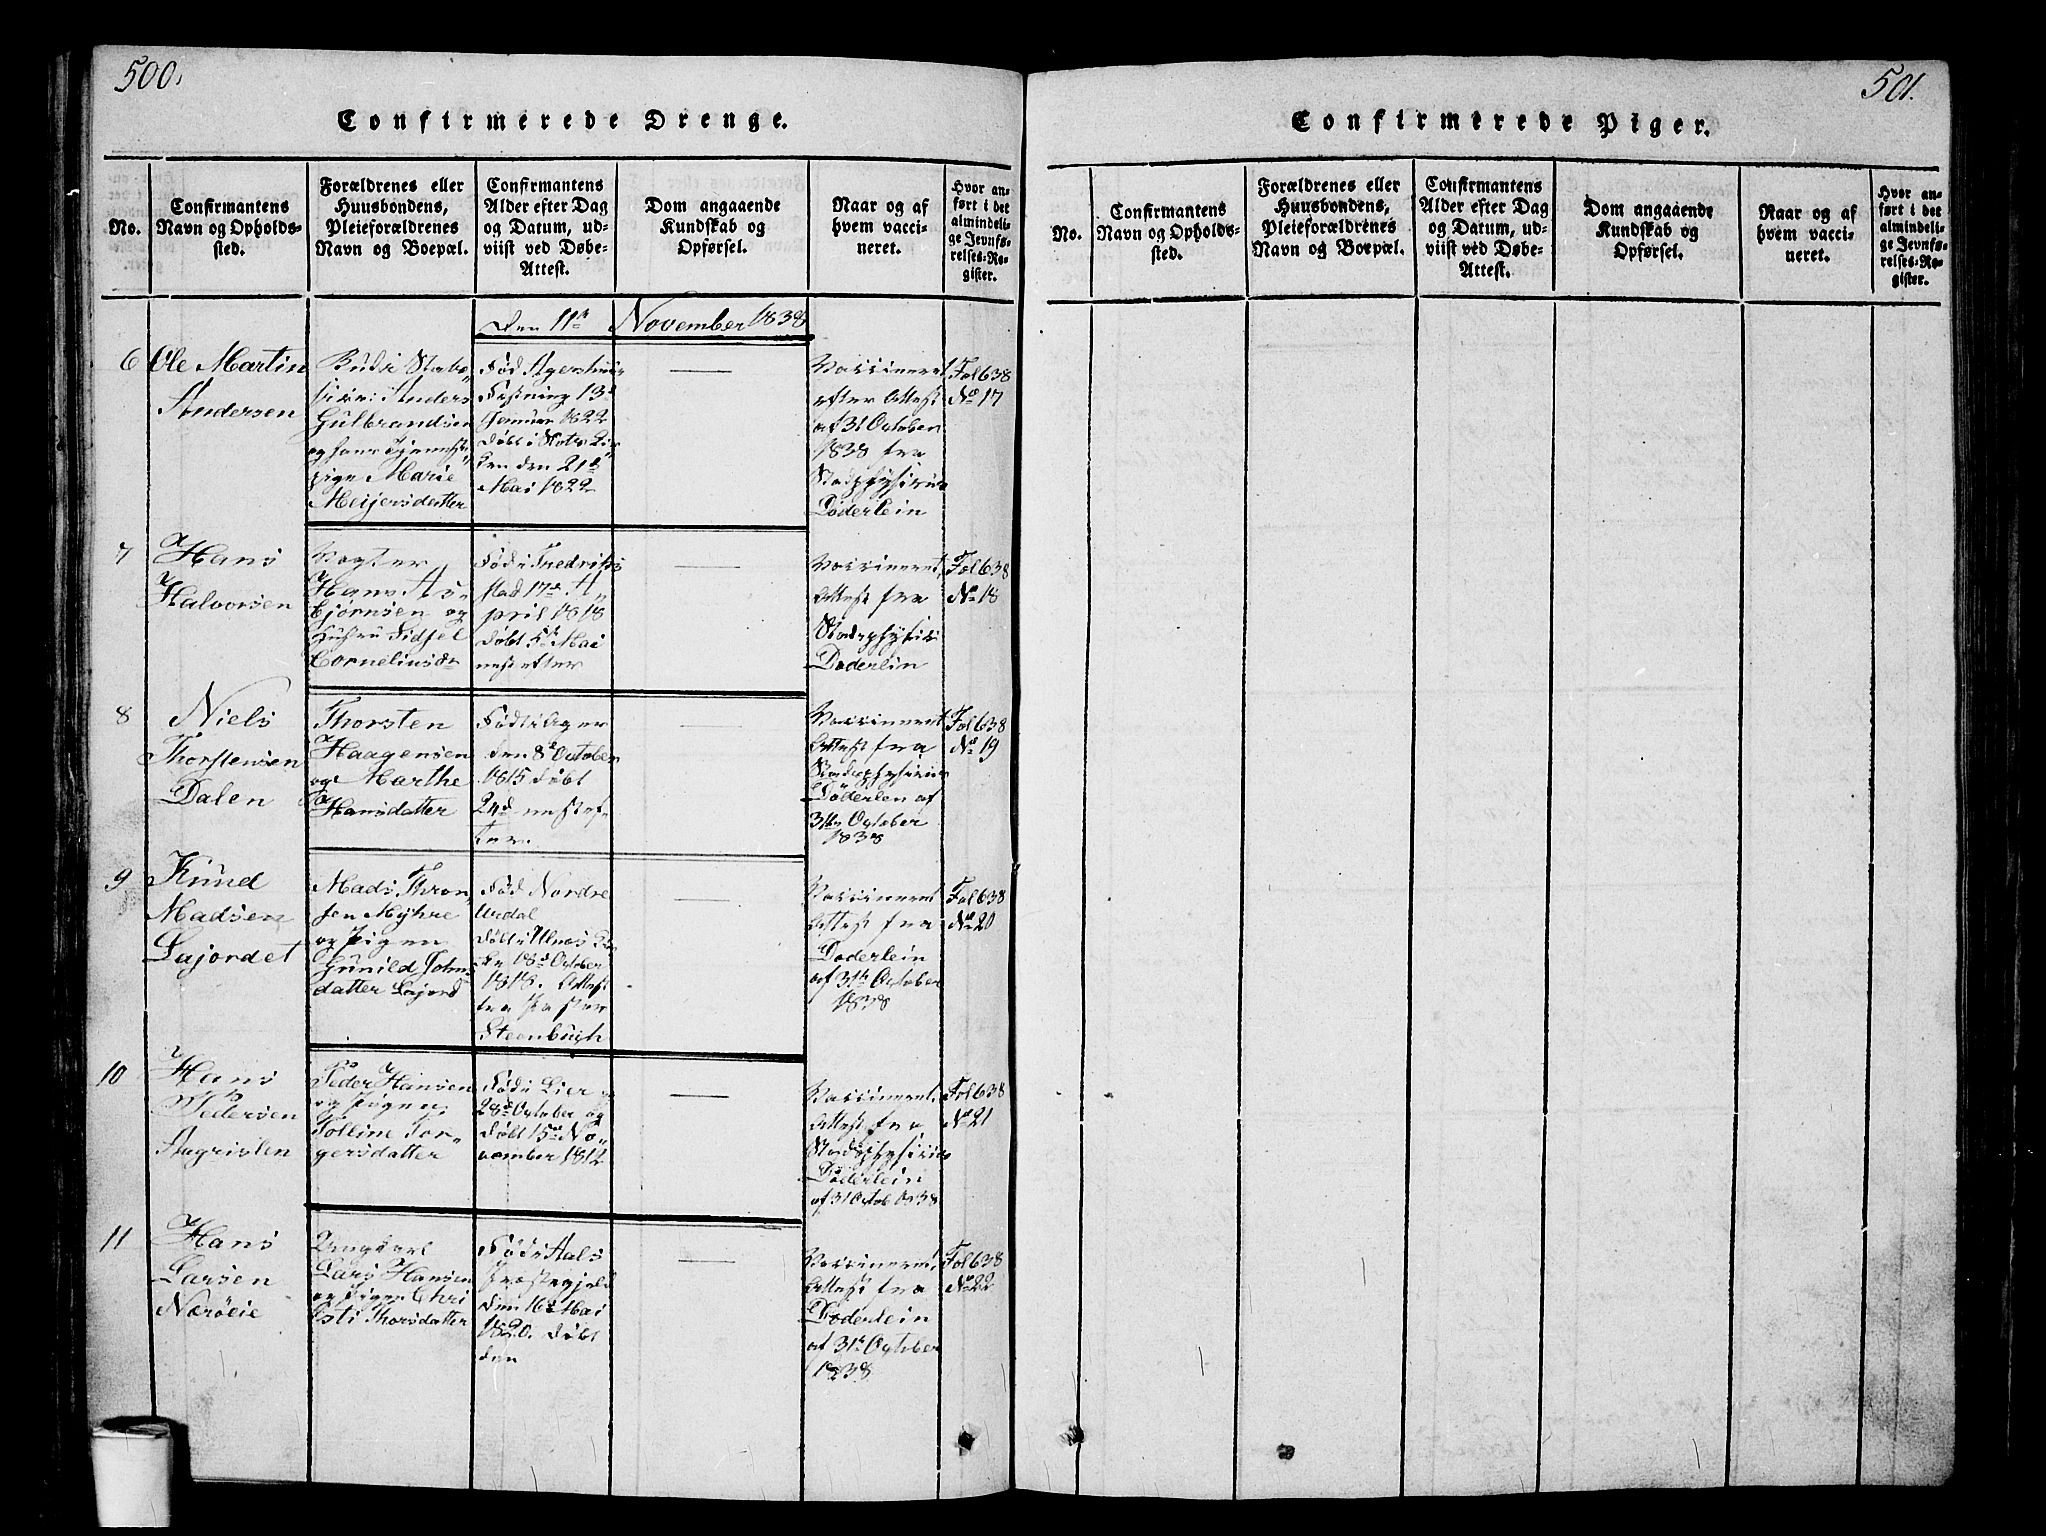 500.
Confirmerede Drenge.
No.
Confirmantens
Navn og Opholds-
sted.
Forældrenes eller
Huusbondens,
Pleieforældrenes
Navn og Boepæl.
Confirmantens
Alder efter Dag
og Datum, ud-
viist ved Døbe-
Attest.
Dom angaaende
Kundskab og
Opførsel.
Naar og af
hvem vacci-
neret.
Hvor an-
ført i det
almindeli-
ge Jevnfø-
relses-Re-
gister.
Den 11te November 1838
6
Ole Martin
Andersen
Anders
Gulbrandsen
og hans Tjeneste
pige Marie
Meijersdatter
Fød Agershuus
Festning 13de
Januar 1822
døbt i Slots Kir
ken den 21de
Mai 1822
Vaccineret
efter Attest
af 31 October
1838 fra
Stadsphysicus
Døderlein
Fol 638
No 17
7
Hans
Halvorsen
Hans As-
bjørnsen og
Hustru Sidsel
Corneliusd.
Fød i Fredriks
stad 17de A-
pril 1818
døbt 5te Mai
nestefter
Vaccineret,
Attest fra
Stadsphysici
Døderlein
Fol 638
No 18
8
Niels
Thorstensen
Dalen
Thorsten
Haagensen
og Marthe
Hansdatter
Født i Ager
den 8de October
1815 døbt
nestef-
ter.
Vaccineret
Attest fra
Stadsphysicus
Døderlen af
31te October
1838
Fol 638
No 19
9
Knud
Madsen
Lajordet
Mads Thron-
sen Myhre
og Pigen
Gunild John-
datter Lajord
Fød Nordre
Urdal
døbt i Ulnæs Kir
ke 18de October
1818. Attest
fra Pastor
Steenbugh
Vaccineret
Attest fra
Døderlein
af 31te October
1838
Fol 638
No 20
10
Hans
Pedersen
Peder Hansen
og Pigen
Tolline Tor-
gersdatter
Fød i Lier
28de October og
døbt 15de No-
vember 1812
Vaccineret.
Attest fra
Stadsphysicus
Døderlein
af 31 Octob 1838
Fol 638
No 21
11
Hans
Larsen
Nærøeie
Ungkarl
Lars Hansen
og Pigen Chri
sti Thorsdatter
Fød i Aals
Præstegjeld
den 16de Mai
1820. døbt
den
Vaccineret,
Attest fra
Døderlein
af 31te October
1838
Fol 638
No 22
501.
Confirmerede Piger.
No.
Confirmantens
Navn og Opholds-
sted.
Forældrenes eller
Huusbondens,
Pleieforældrenes
Navn og Boepæl.
Confirmantens
Alder efter Dag
og Datum, ud-
viist ved Døbe-
Attest.
Dom angaaende
Kundskab og
Opførsel.
Naar og af
hvem vacci-
neret.
Hvor an-
ført i det
almindeli-
ge Jevnfø-
relses-Re-
gister.